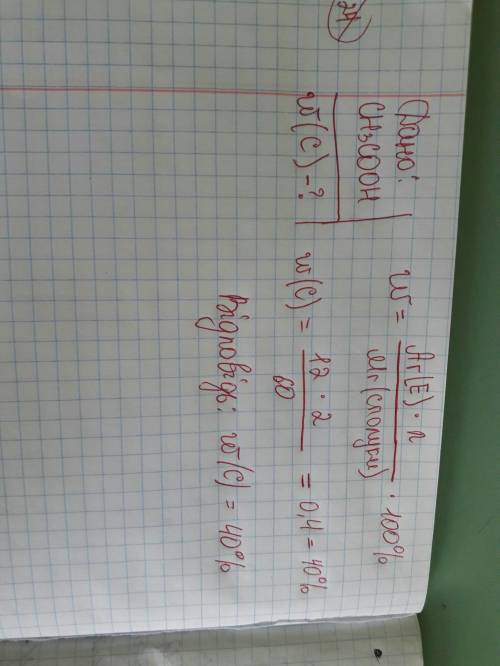 24
Дано:
CH3COOH
w(C) - ?
w = Ar(E) · n / Mr(сполуки) · 100%
w(C) = 12 · 2 / 60 = 0,4 = 40%
Відповідь: w(C) = 40%